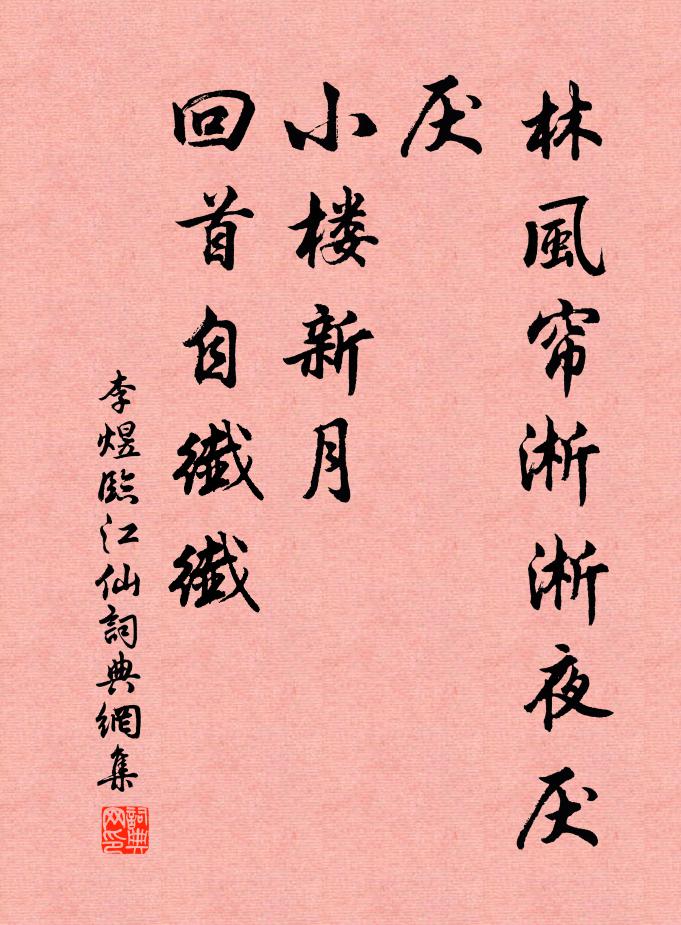 林風帘淅淅夜厌
厌
小楼新月
回首自纖纖
李煜臨江仙詞典網集
詞典网印